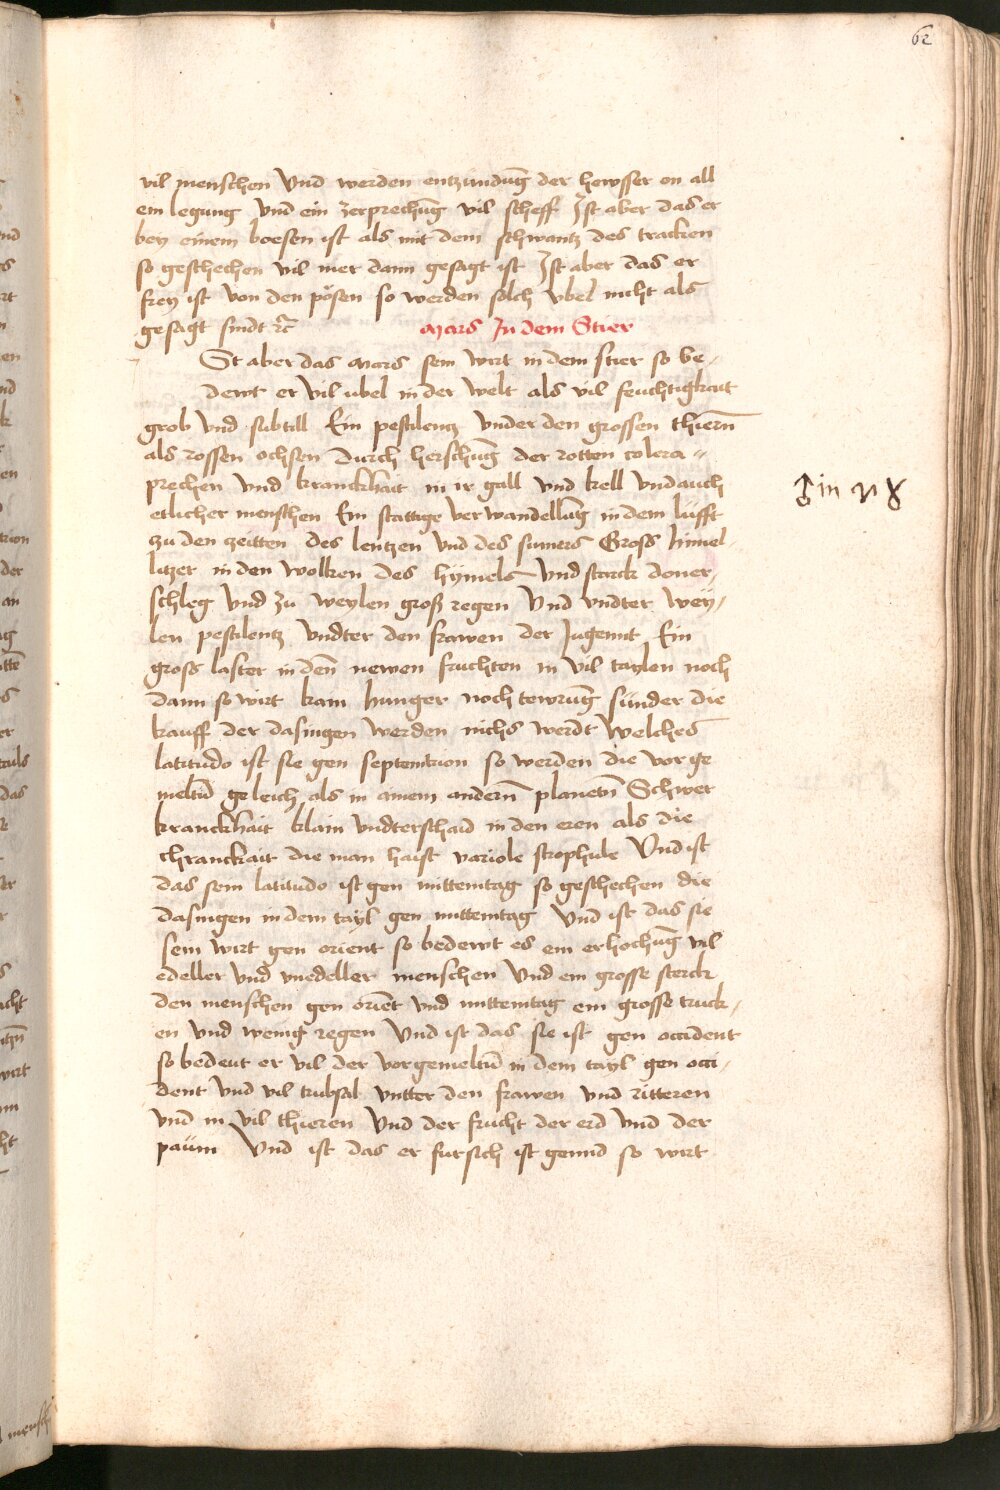 62
vil menschen Vnd werden entzundūg der hewsser on all
ein legung vnd ein zerprechūg vil scheff Ist aber das er
bey einem boesen ist als mit dem schwantz des tracken
so geschechen vil mer dann gesagt ist Ist aber das er
frey ist von den pösen so werden solch vbel nicht als
gesagt sindt ꝛc̄ Mars In dem Stier
St aber das Mars sein wirt in dem stier so be-
dewt er vil ubel in der welt als vil feuchtigkait
grob vnd subtill Ein pestilentz vnder den grossen thiern̄
als rossen ochsen durch herschūg der rotten colera =
prechen vnd kranckhait in ir gall vnd kell vnd auch
♂ in ♉
etlicher menschen Ein stattige verwandellūg in dem lüfft
zu den zeitten des lentzen vnd des sumers Gross himel-
litzer in den wolken des hÿmels Vnd starck doner,
schleg vnd zu weylen groß regen Vnd vndter wey,
len pestilentz vndter den frawen der Jugennt Ein
gross laster in den̄ newen fruchten in vil taylen noch
dann so wirt kain hunger noch tewrūg sünder die
kauff der dasingen werden nichs werdt Welches
latitudo ist sie gen septemtrion so werden die vor ge
meltn̄ geleich als in ainem andern̄ planetn̄ Schwer
kranckhait klain vndterschaid in den eren als die
chranckait die man haist variole scrophule Vnd ist
das sein latitudo ist gen mittemtag so geschechen die
dasingen in dem tayl gen mittemtag Vnd ist das sie
sein wirt gen orient so bedewt es ein erhochūg vil
edeller vnd vnedeller menschen Vnd ein grosse sterck
den menschen gen oriēt vnd mittemtag ein grosse truck,
en vnd wenig regen Vnd ist das sie ist gen occident
so bedeut er vil der vorgemeltn̄ in dem tayl gen occi-
dent vnd vil trubsal vntter den frawen vnd ritteren
vnd in vil thieren Vnd der frucht der erd vnd der
paüm Vnd ist das er fursich ist geund so wirt